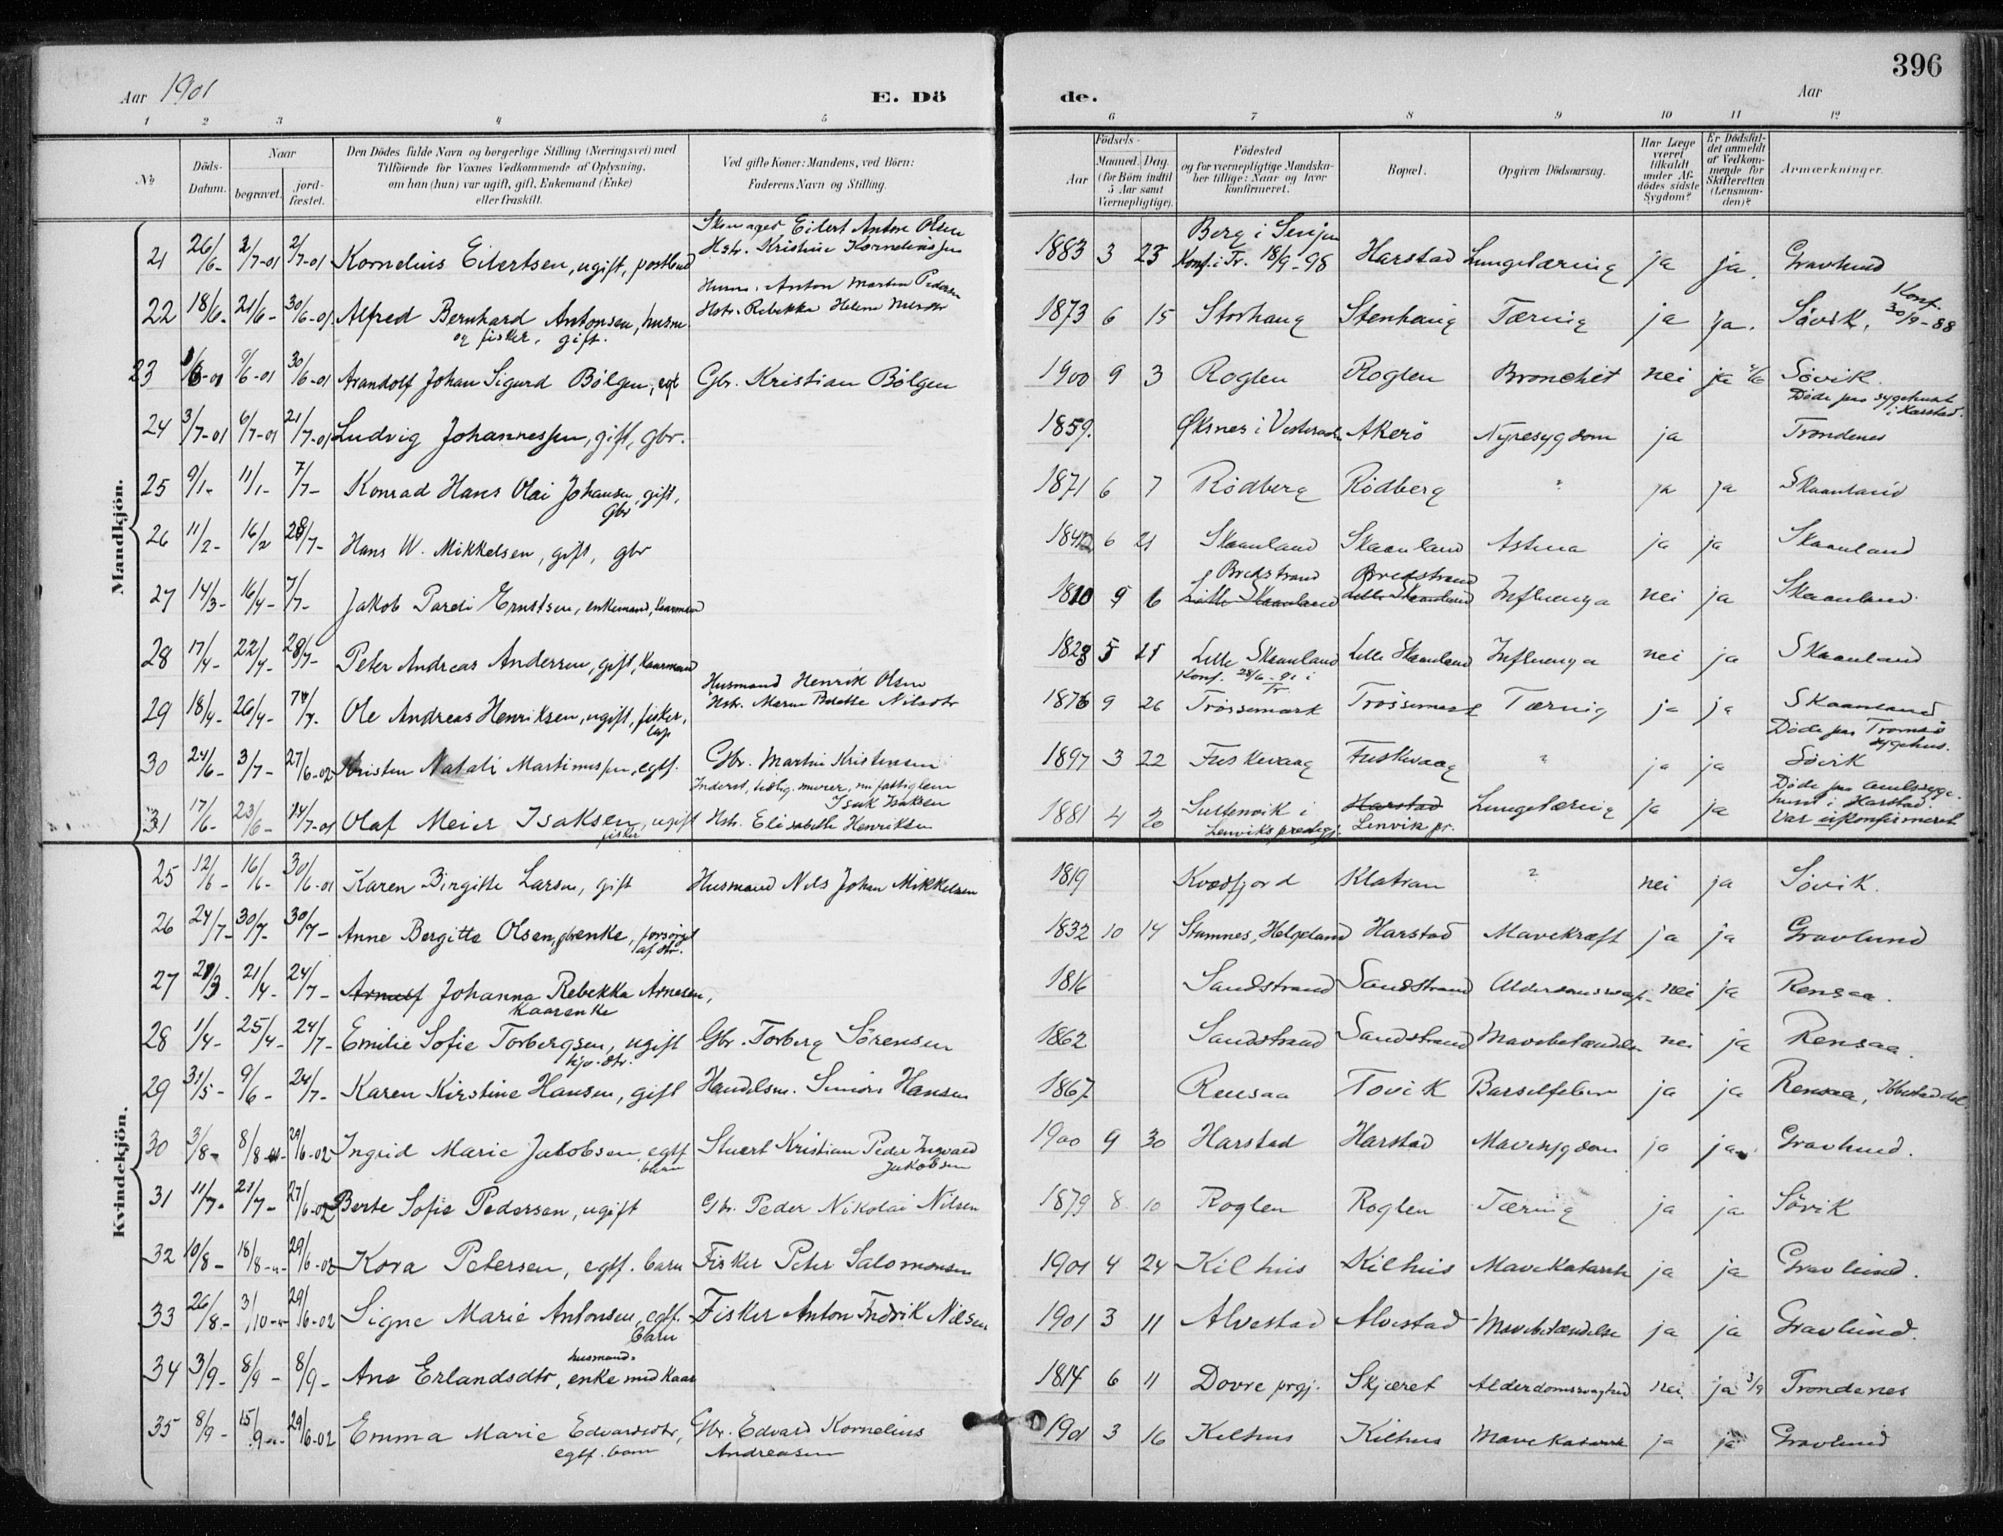 396
Aar 1901 E. Dö de. Aar
1 2 3 4 5 6 7 8 9 10 11 12
No Döds-Datum. Naar begravet. jordfæstet. Den Dödes fulde Navn og borgerlige Stilling (Næringsvei) med Tilföiende for Voxnes Vedkommende af Oplysning, om han (hun) var ugift, gift, Enkemand (Enke) eller fraskilt. Ved gifte Koner: Mandens, ved Börn: Faderens Navn og Stilling. Födsels- Aar Maaned. Dag. (for Börn indtil 5 Aar samt Værnepligtige). Födested og for værnepligtige Mandskaber tillige: Naar og hvor konfirmeret. Bopæl. Opgiven Dödsaarsag. Har Læge været tilkaldt under Afdödes sidste Sygdom? Er Dödsfaldet anmeldt af Vedkommende for Skifteretten (Lensmanden)? Anmærkninger.
Mandkjön.
21 26/6- 2/7-01 2/7-01 Kornelius Eilertsen, ugift, postbud Eilert Anton Olsen Hstr. Kristine Korneliussen 1883 3 23 Berg i Senjen Konf. i Tr. 18/9-98 Harstad Lungetæring ja ja. Gravlund
22 18/6- 21/6- 30/6-01 Alfred Bernhard Antonsen, husm og fisker, gift. Husm. Anton Martin Pedersen Hstr. Rebekka Helene 1873 6 15 Storhaug Stenhaug Tæring ja ja. Sövik, Konf. 30/9-88
23 9/6-01 30/6-01 Arandolf Johan Sigurd Bölgen, egt Gbr. Kristian Bölgen 1900 9 3 Roglen Roglen Bronchit nei ja Sövik.
24 3/7-01 6/7-01 21/7-01 Ludvig Johannessen, gift, gbr. 1859. Öksnes i Vesteraalen Akerö Nyresygdom ja Döde paa sygehuset i Harstad. Trondenes
25 9/1- 11/1- 7/7- Konrad Hans Olai Johansen, gift, Gbr 1871 6 7 Rödberg Rödberg ? ja ja Skaanland
26 11/2- 16/2 28/7- Hans W. Mikkelsen, gift, gbr 6 21 Skaanland Skaanland Astma ja ja Skaanland
27 14/3- 16/4- 7/7- Jakob Pardi Ernstsen, enkemand, kaarmand 1810 9 6 Bredstrand Lille Skaanland Bredstrand Lille Skaanland Influenza nei ja Skaanland
28 17/4- 22/4- 28/7- Peter Andreas Andersen, gift, kaarmand 1823 5 Lille Skaanland Lille Skaanland Influenza nei ja Skaanland
29 18/4- 26/4- 7/7- Ole Andreas Henriksen, ugift, fisker, lap Husmand Henrik Olsen Hstr. Maren Nilsdtr 1876 9 26 Konf. 28/6-91 i Tr Trössemark Trössemark Tæring ja ja Skaanland
30 24/6- 3/7- 27/6-02 Kristen Natali Martinussen, egtf. Gbr. Martin Kristensen 1897 3 22 Fuskevaag Fuskevaag ? ja ja Döde paa Tromsö sygehus. Sövik
31 17/6- 23/6- 14/7-01 Olaf Meier Isaksen, ugift fisker Inderst, tidlig. murer, nu fattiglem Isak Isaksen Hstr. Elisabeth Henriksen 1881 4 20 i Lenviks prestegj. Harstad Lenvik pr. Lungetæring ja ja Döde paa amtssygehuset i Harstad. Var ukonfirmeret
Kvindekjön.
25 12/6- 16/6- 30/6-01 Karen Birgitte Larsen, gift Husmand Nils Johan Mikkelsen 1819 Kvædfjord Klatran ? nei ja Sövik.
26 24/7- 30/7- 30/7- Anne Bergitte Olsen, gbrenke, forsörget af dtr. 1832 10 14 Stamnes, Helgeland Harstad Mavekræft ja ja Gravlund
27 21/4- 24/7- Arnulf Johanna Rebekka Arnesen, Kaarenke 1816 Sandstrand Sandstrand Alderdomssvagh. nei ja Rensaa.
28 1/4- 25/4- 24/7- Emilie Sofie Torbergsen, ugift Gbr. Torberg Sörensen 1862 Sandstrand Sandstrand Mavebetændelse nei ja Rensaa.
29 31/5- 9/6- 24/7- Karen Kirstine Hansen, gift Handelsm. Hansen 1867 Rensaa Tovik Barselfeber ja ja Rensaa, Ibbestad del.
30 3/8- 8/8- 29/6-02 Ingrid Marie Jakobsen, egtf barn Stuert Kristian Peder Ingvald Jakobsen 1900 9 30 Harstad Harstad Mavesygdom ja ja Gravlund.
31 11/7- 21/7- 27/6-02 Berte Sofie Pedersen, ugift Gbr. Peder Nikolai Nilsen 1879 8 10 Roglen Roglen Tæring ja ja Sövik
32 10/8- 18/8- 29/6-02 Kora Petersen, egtf. barn Fisker Peter Salomonsen 1901 4 24 Kilhus Kilhus Mavekatarrh ja ja Gravlund.
33 26/8- 3/10- 29/6-02 Signe Marie Antonsen, egtf. barn Fisker Anton Fredrik Nilsen 1901 3 11 Alvestad Alvestad Mavebetændelse ja ja Gravlund.
34 3/9- 8/9- 8/9- Ane Erlandsdtr, husmands enke med kaar 1814 6 11 Dovre prgj. Skjæret Alderdomssvaghed nei ja 3/9 Trondenes
35 8/9- 15/9- 29/6-02 Emma Marie Edvardsdtr, egtf. barn Gbr. Edvard Kornelius Andreasen 1901 3 16 Kilhus Kilhus Mavekatarrh ja ja Gravlund